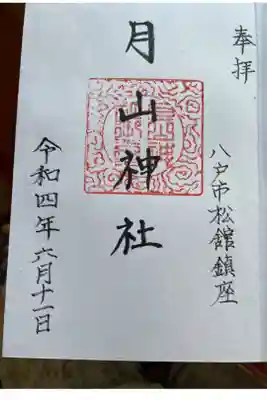 奉拝
八戸市松館鎮座
月山神社
令和四年六月十一日